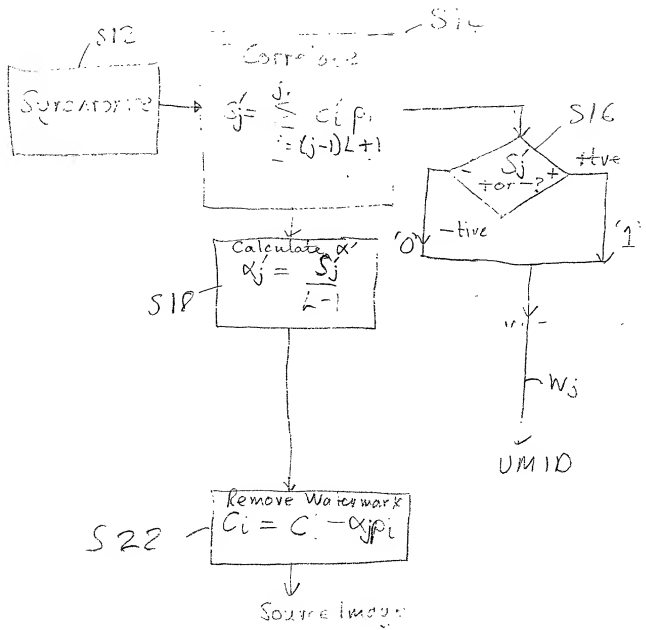 S12
S14
Synchronise
Correlate
Sj' = Σ Ci' Pi
i=(j-1)L+1
S16
Sj'
+or-?
-
+
+tive
'0'
-tive
'1'
Calculate α'
αj' = Sj'
L-1
S18
Wj
UMID
Remove Watermark
S22
Source Image